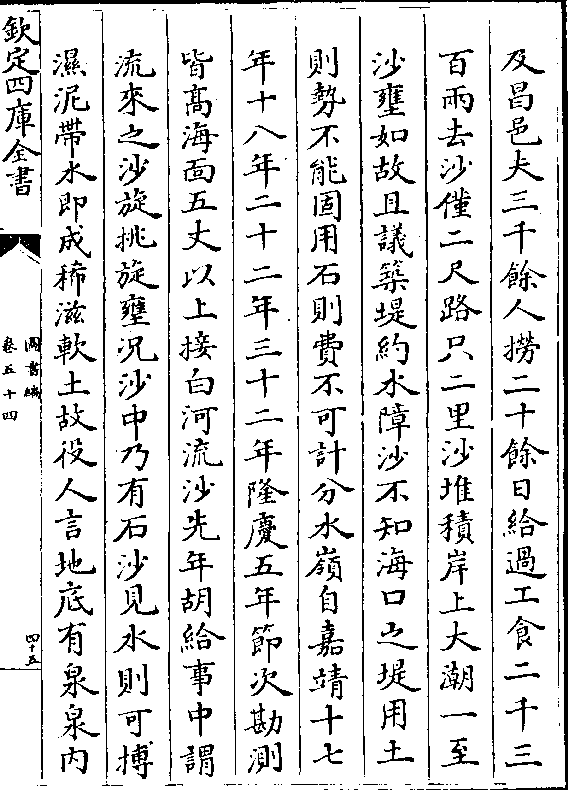 及昌邑夫三千餘人撈二十餘日給過工食二千三
百兩去沙僅二尺路只二里沙堆積岸上大潮一至
沙壅如故且議築堤約水障沙不知海口之堤用土
則勢不能固用石則費不可計分水嶺自嘉靖十七
年十八年二十二年三十二年隆慶五年節次勘測
皆髙海面五丈以上接白河流沙先年胡給事中謂
流來之沙旋挑旋壅况沙中乃有石沙見水則可摶
濕泥帶水即成稀滋軟土故役人言地底有泉泉内
欽定四庫全書
圖書編
卷五十四
四十五